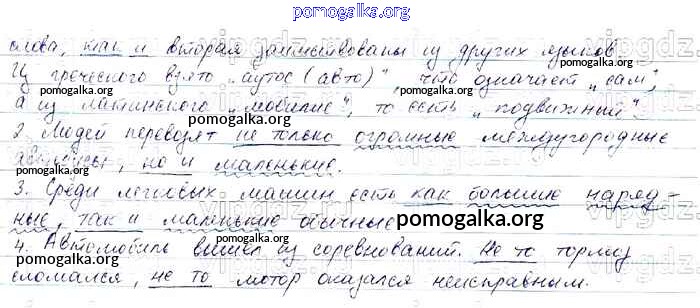 pomogalka.org
слова, как и вторая заимствованы из других языков
pomogalka.org
Из греческого взято „аутос (авто)“, что означает „сам“,
а из латинского „мобилис“, то есть „подвижный“.
pomogalka.org pomogalka.org
2. Людей перевозят не только огромные междугородные
автобусы, но и маленькие.
3. Среди легковых машин есть как большие наряд-
ные, так и маленькие обычные
pomogalka.org
4. Автомобиль вышел из соревнований. Не то тормоз
сломался, не то мотор оказался неисправным.